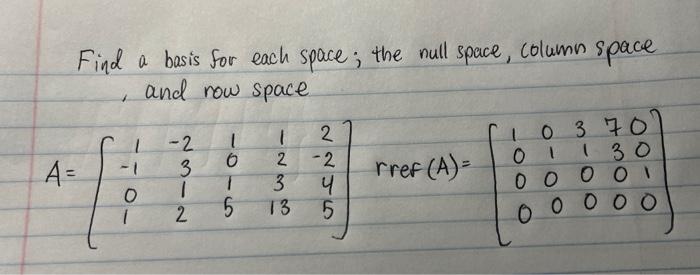 Find a basis for each space; the null space, column space
, and row space
A= [ 1 -2 1 1 2
-1 3 0 2 -2
0 1 1 3 4
1 2 5 13 5 ]
rref(A)= [ 1 0 3 7 0
0 1 1 3 0
0 0 0 0 1
0 0 0 0 0 ]